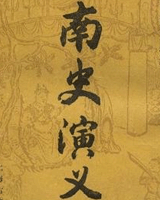 南史演义